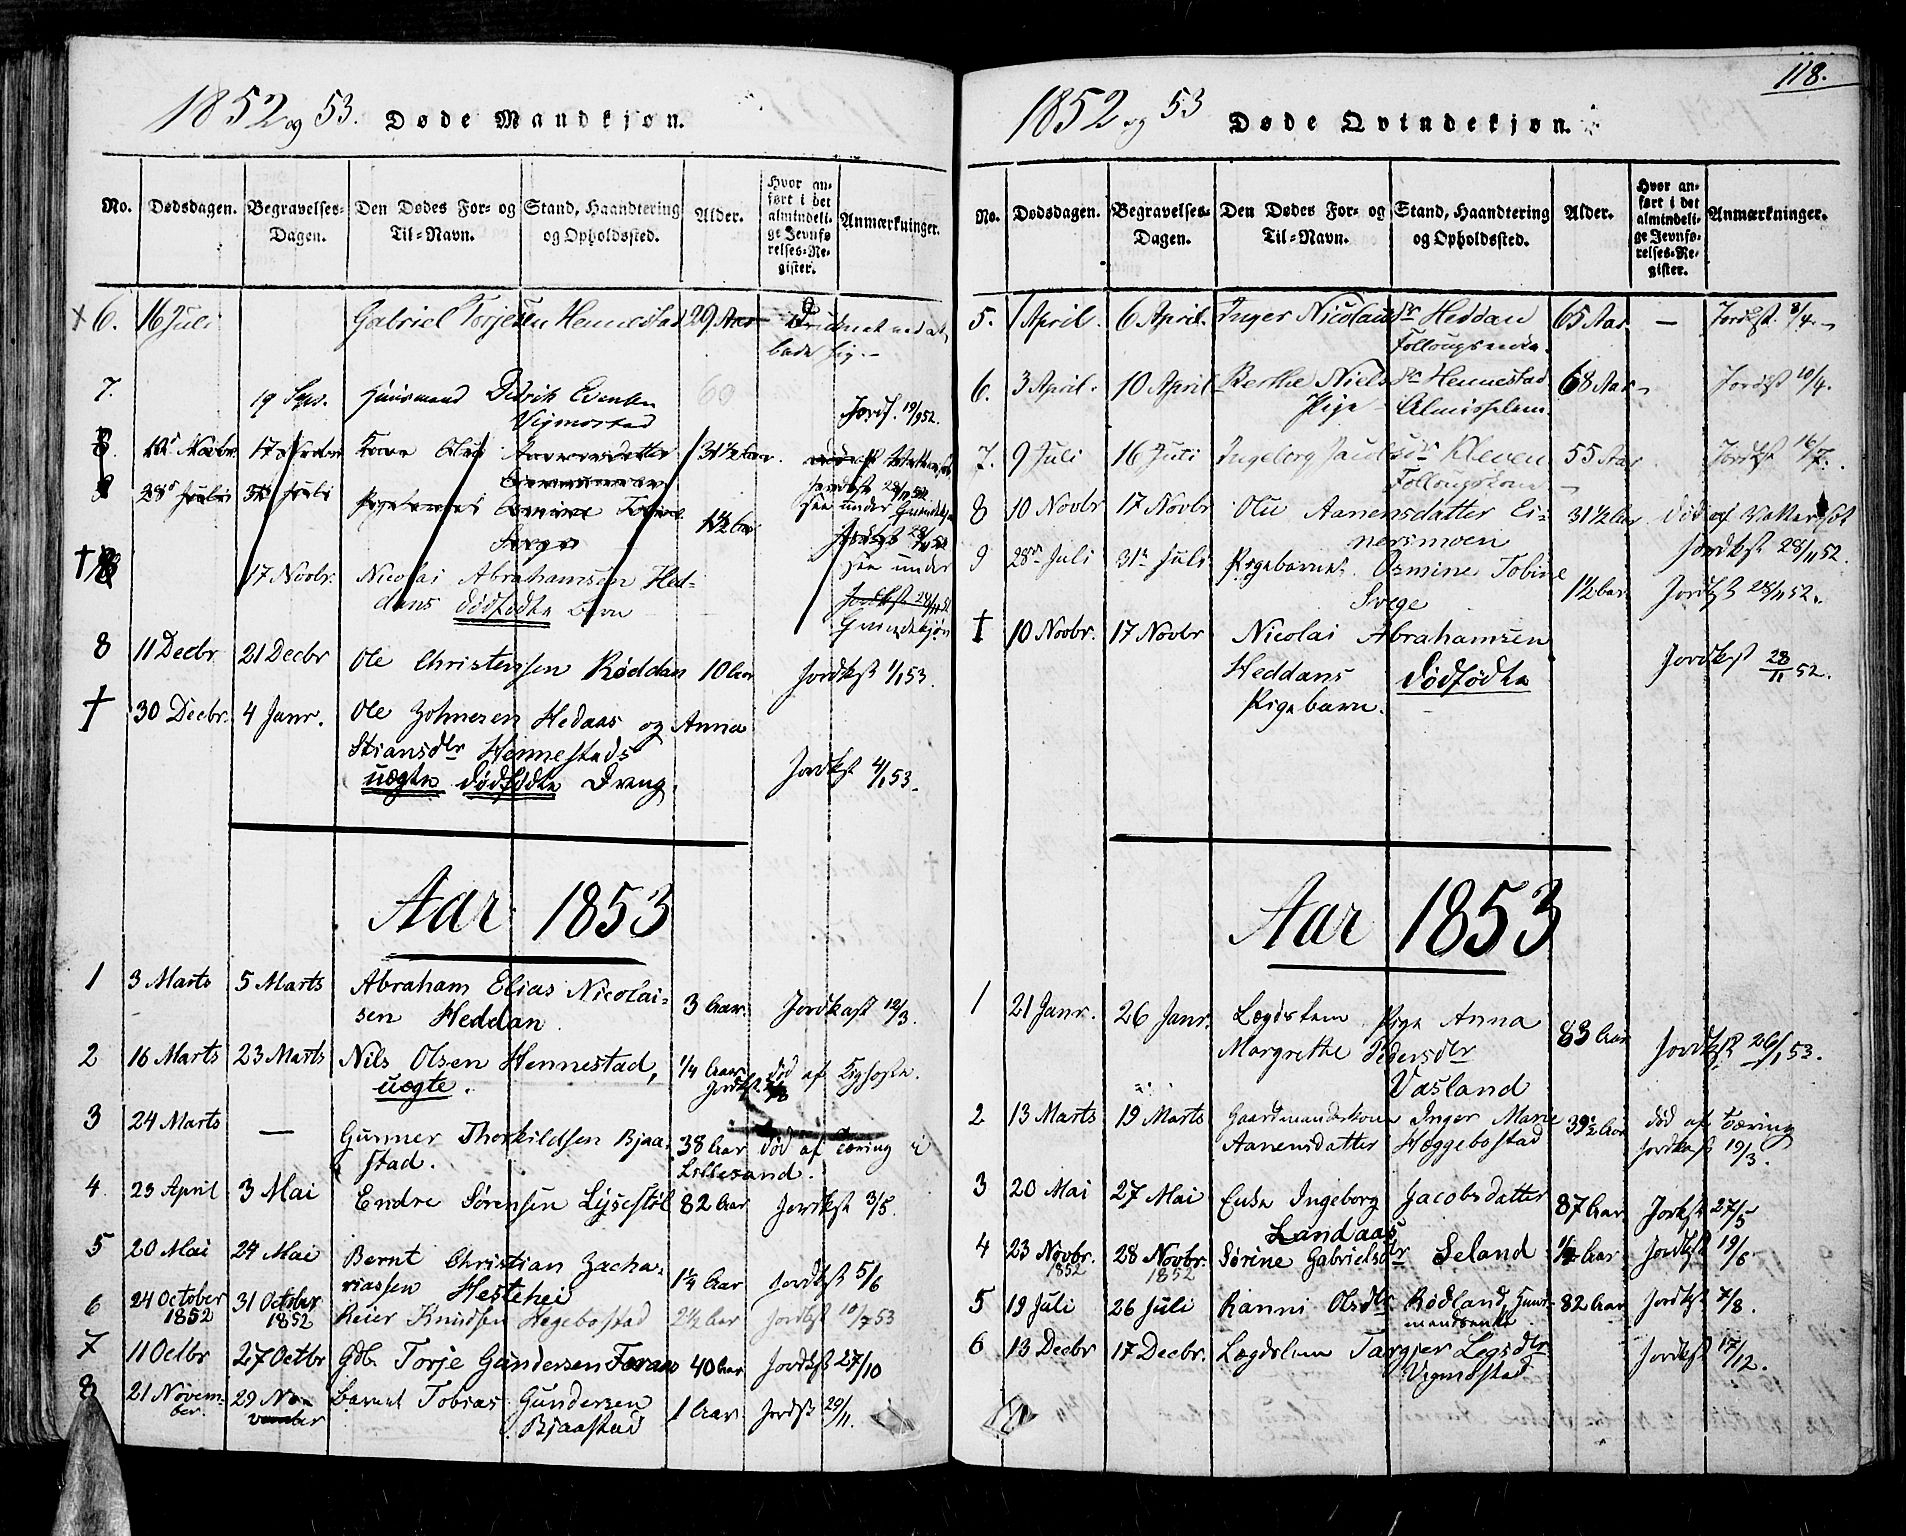 118.
1852 og 53. Døde Mandkjøn.
No. Dødsdagen. Begravelses-Dagen. Den Dødes For- og Til-Navn. Stand, Haandtering og Opholdssted. Alder. Hvor anført i det almindelige Jevnførelses-Register. Anmærkninger.
6. 16 Juli Gabriel Torjesen Hennestad 29 Aar
7. 19 Sept. Huusmand Didrik
Vigmostad Jordf. 19/9 52.
8. 17 Novbr 31½ Aar
Jordkst 28/11 52
see under Qvindekjøn
9 28de Juli 31te Juli Pigebarnet Osmine Tobine
Svege 1½ Aar
see under
† 17 Novbr. Nicolai Abrahamsen Hed-
dans dødfødte Barn Jordkst 28/11 52
Qvindekjøn
8 11 Decbr 21 Decbr Ole Christensen Røddan 10 Aar Jordkst 1/1 53.
† 30 Decbr. 4 Janr. Ole Hedaas og Anna
Stiansdtr Hennestads
uægte dødfødte Dreng. Jordkst 4/1 53.
Aar 1853
1 3 Marts 5 Marts Abraham Elias Nicolai-
sen Heddan. 3 Aar. Jordkast 12/3.
2 16 Marts 23 Marts Nils Olsen Hennestad, ¼ Aar død af Kighoste.
uægte.
3 24 Marts — Gunner Thorkildsen Bjaa- 38 Aar død af Tæring i
stad. Lillesand.
4. 23 April 3 Mai Endre Sørensen Lysestøl 82 Aar Jordkst 3/5.
5 20 Mai 24 Mai Bernt Christian Zacha-
riassen Hestehei 1¼ Aar Jordkst 5/6
6 24 October 1852 31 October 1852 Reier Knudsen Hegebostad 2½ Aar Jordkst 10/7 53
7 11 Octbr 27 Octbr Gdb. Torje Gundersen Foraas 40 Aar Jordkst 27/10
8 21 Novem-
ber. 29 No-
vember Barnet Tobias Gundersen
Bjaastad 1 Aar Jordkst 29/11.
1852 og 53 Døde Qvindekjøn.
No. Dødsdagen. Begravelses-Dagen. Den Dødes For- og Til-Navn. Stand, Haandtering og Opholdssted. Alder. Hvor anført i det almindelige Jevnførelses-Register. Anmærkninger.
5. 1 April. 6 April. Inger Nicolaidr Heddan 65 Aar — Jordkst. 8/4.
Føllougskone.
6. 3 April. 10 April Berthe Nielsdr Hennestad 68 Aar Jordkst 10/4.
Pige - Almisselem.
7. 9 Juli 16 Juli Ingeborg Kleven 55 Aar Jordkst 16/7.
Føllougskone
8 10 Novbr 17 Novbr Olu Aanensdatter Ei-
nersmoen 31½ Aar død af Vattersot
Jordkst 28/11 52.
9 28de Juli 31te Juli Pigebarnet Osmine Tobine
Svege 1½ Aar Jordkst 28/11 52.
† 10 Novbr. 17 Novbr Nicolai Abrahamsen
Heddans dødfødte
Pigebarn. Jordkst 28/11 52.
Aar 1853
1 21 Janr. 26 Janr. Lægdslem Pige Anna
Margrethe Pedersdtr
Vasland 83 Aar Jordkst 26/1 53.
2 13 Marts 19 Marts Gaardmandskone Inger Marie
Aanensdatter Heggebostad 39½ Aar død af Tæring
Jordkast 19/3.
3 20 Mai 27 Mai Enke Ingeborg Jacobsdatter
Landaas 87 Aar Jordkst 27/5
4 23 Novbr. 1852 28 Novbr. 1852 Sørine Gabrielsdtr Seland Aar Jordkst 19/6
5 19 Juli 26 Juli Ranni Olsdtr Rødland, Huus-
mandsenke 82 Aar Jordkst 7/8.
6 13 Decbr 17 Decbr. Lægdslem Targjer Legsdtr
Vigmostad Jordkst 17/12.